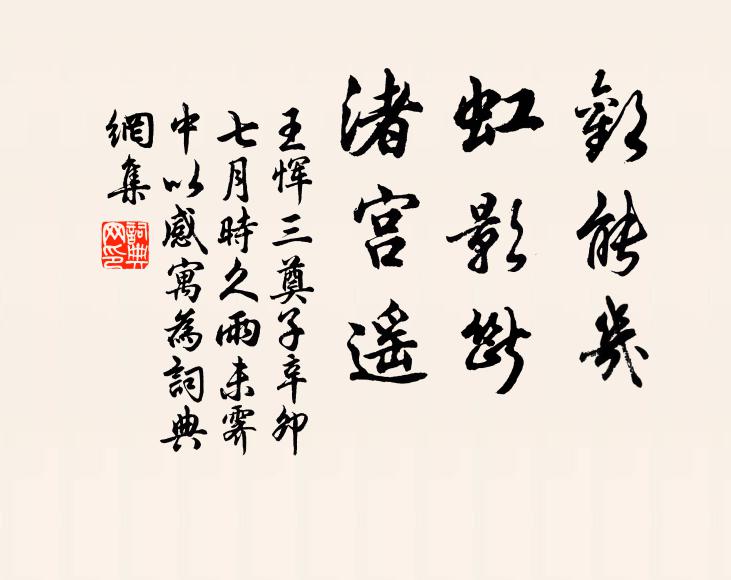 歡能幾
虹影斷
渚宮遥
王惲三奠子辛卯
七月時久雨未霽
中以感寓為詞典
網集
詞典
网印